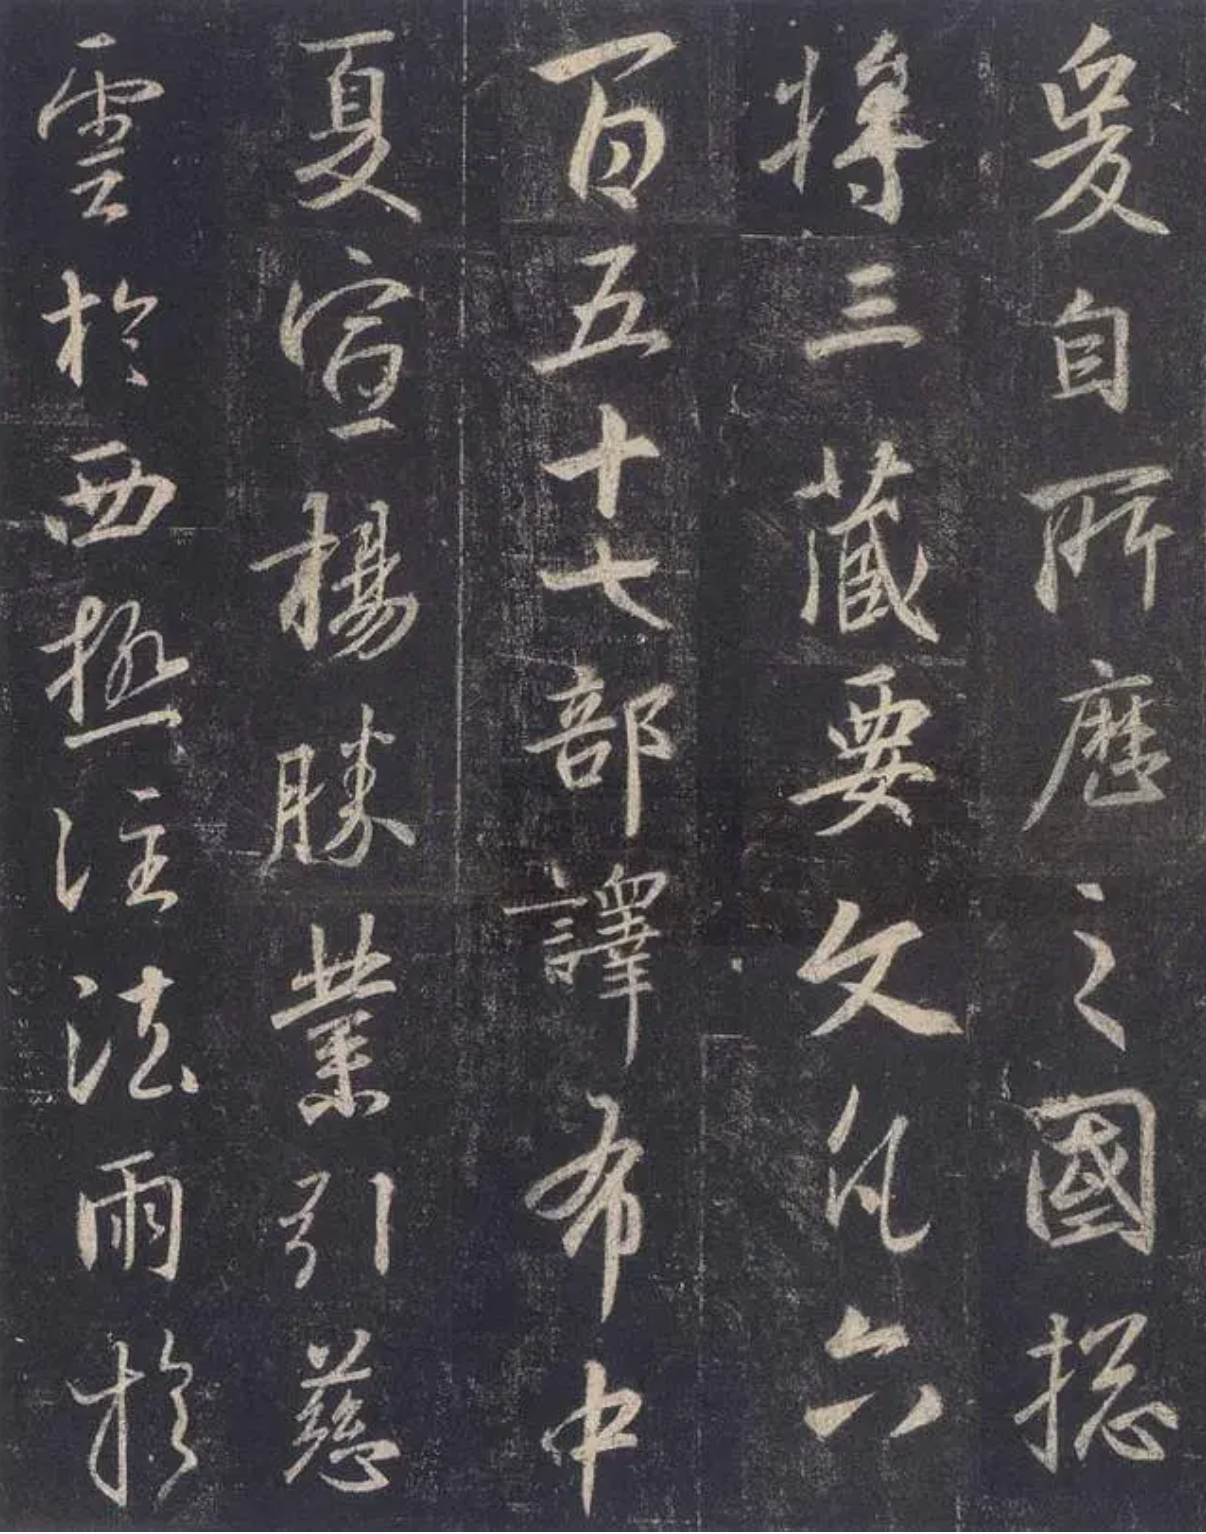 爰自所歷之國揔
將三藏要文凡六
百五十七部譯布中
夏宣揚勝業引慈
雲於西極注法雨於